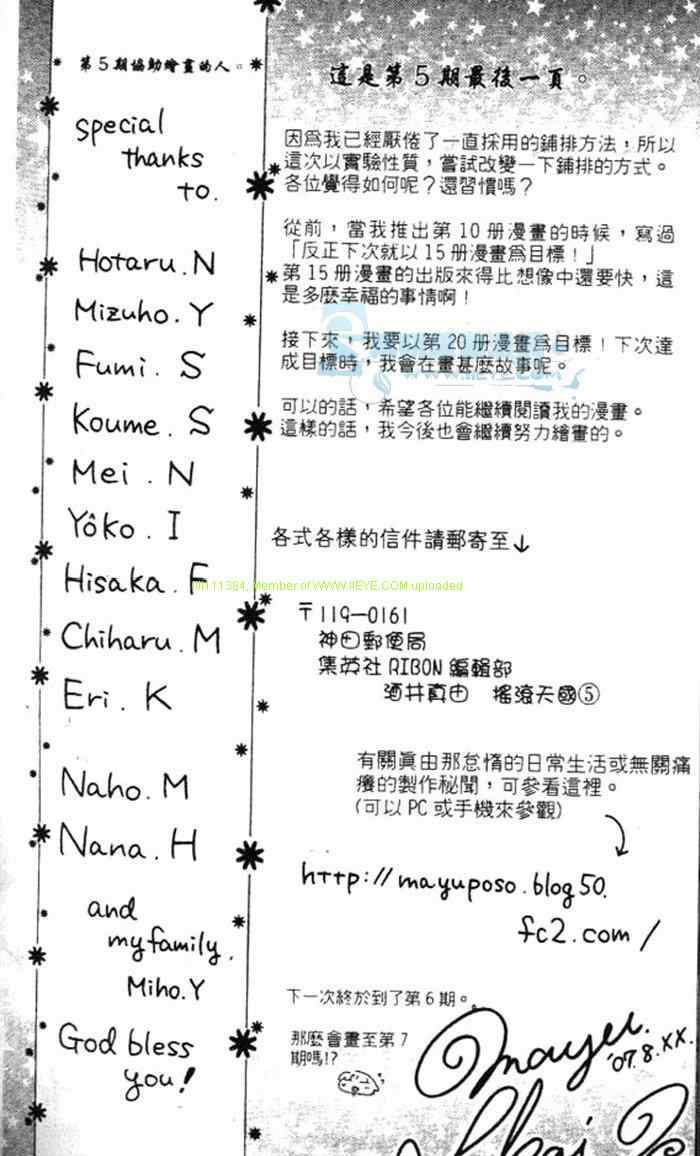 第5期協助繪畫的人。
special
thanks
to.
Hotaru.N
Mizuho.Y
Fumi.S
Koume.S
Mei.N
Yôko.I
Hisaka.F
Chiharu.M
Eri.K
Naho.M
Nana.H
and
my family.
Miho.Y
God bless
you!
這是第5期最後一頁。
因爲我已經厭倦了一直採用的鋪排方法，所以
這次以實驗性質，嘗試改變一下鋪排的方式。
各位覺得如何呢？還習慣嗎？
從前，當我推出第10册漫畫的時候，寫過
「反正下次就以15册漫畫爲目標！」
第15册漫畫的出版來得比想像中還要快，這
是多麽幸福的事情啊！
接下來，我要以第20册漫畫爲目標！下次達
成目標時，我會在畫甚麽故事呢。
可以的話，希望各位能繼續閱讀我的漫畫。
這樣的話，我今後也會繼續努力繪畫的。
各式各樣的信件請郵寄至↓
Member of WWW.IIEYE.COM uploaded
〒119-0161
神田郵便局
集英社RIBON編輯部
酒井真由 搖滾天國⑤
有關眞由那怠惰的日常生活或無關痛
癢的製作秘聞，可參看這裡。
(可以PC或手機來參觀)
http://mayuposo.blog50.
fc2.com/
下一次終於到了第6期。
那麽會畫至第7
期嗎!?
mayu.
'07.8.XX.